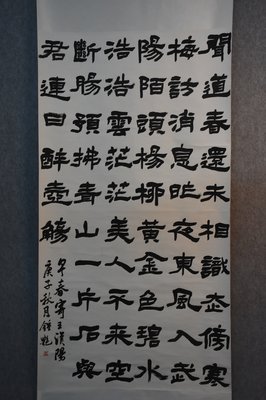 聞道春還未相識走傍寒
梅訪消息昨夜東風入武
陽陌頭楊柳黃金色碧水
浩浩雲茫茫美人不來空
斷腸預拂青山一片石與
君連日醉壺觴
早春寄王漢陽
庚子秋月